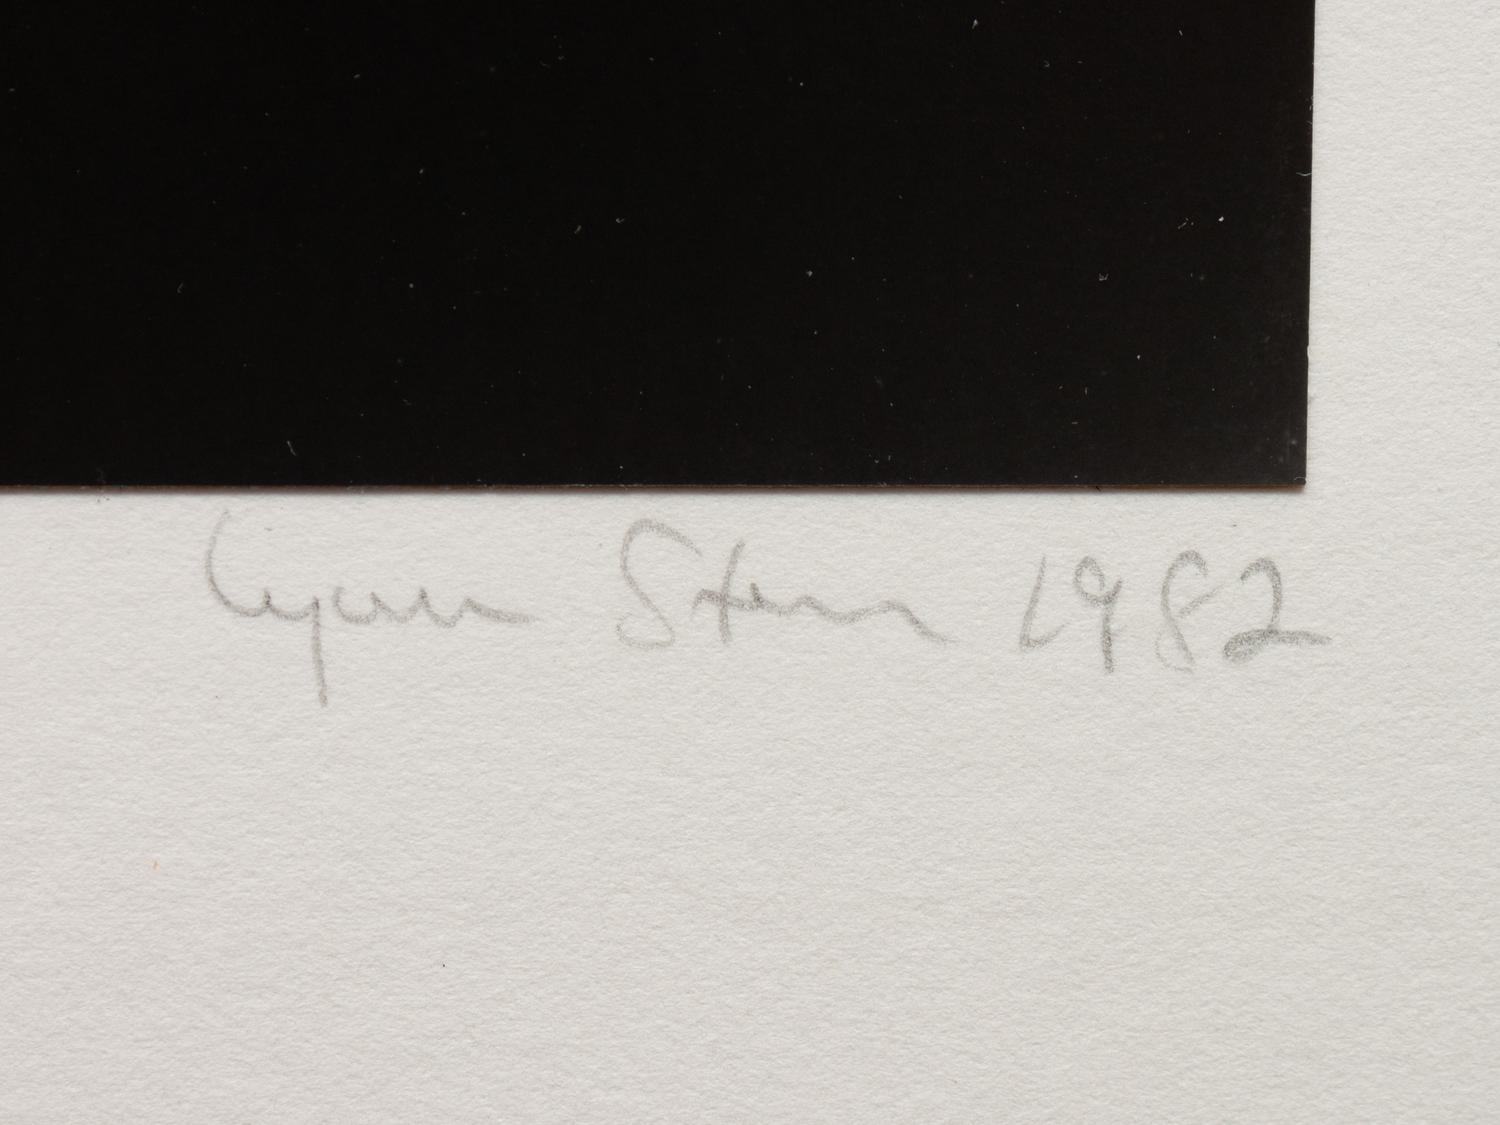 Lynn Stern 1982